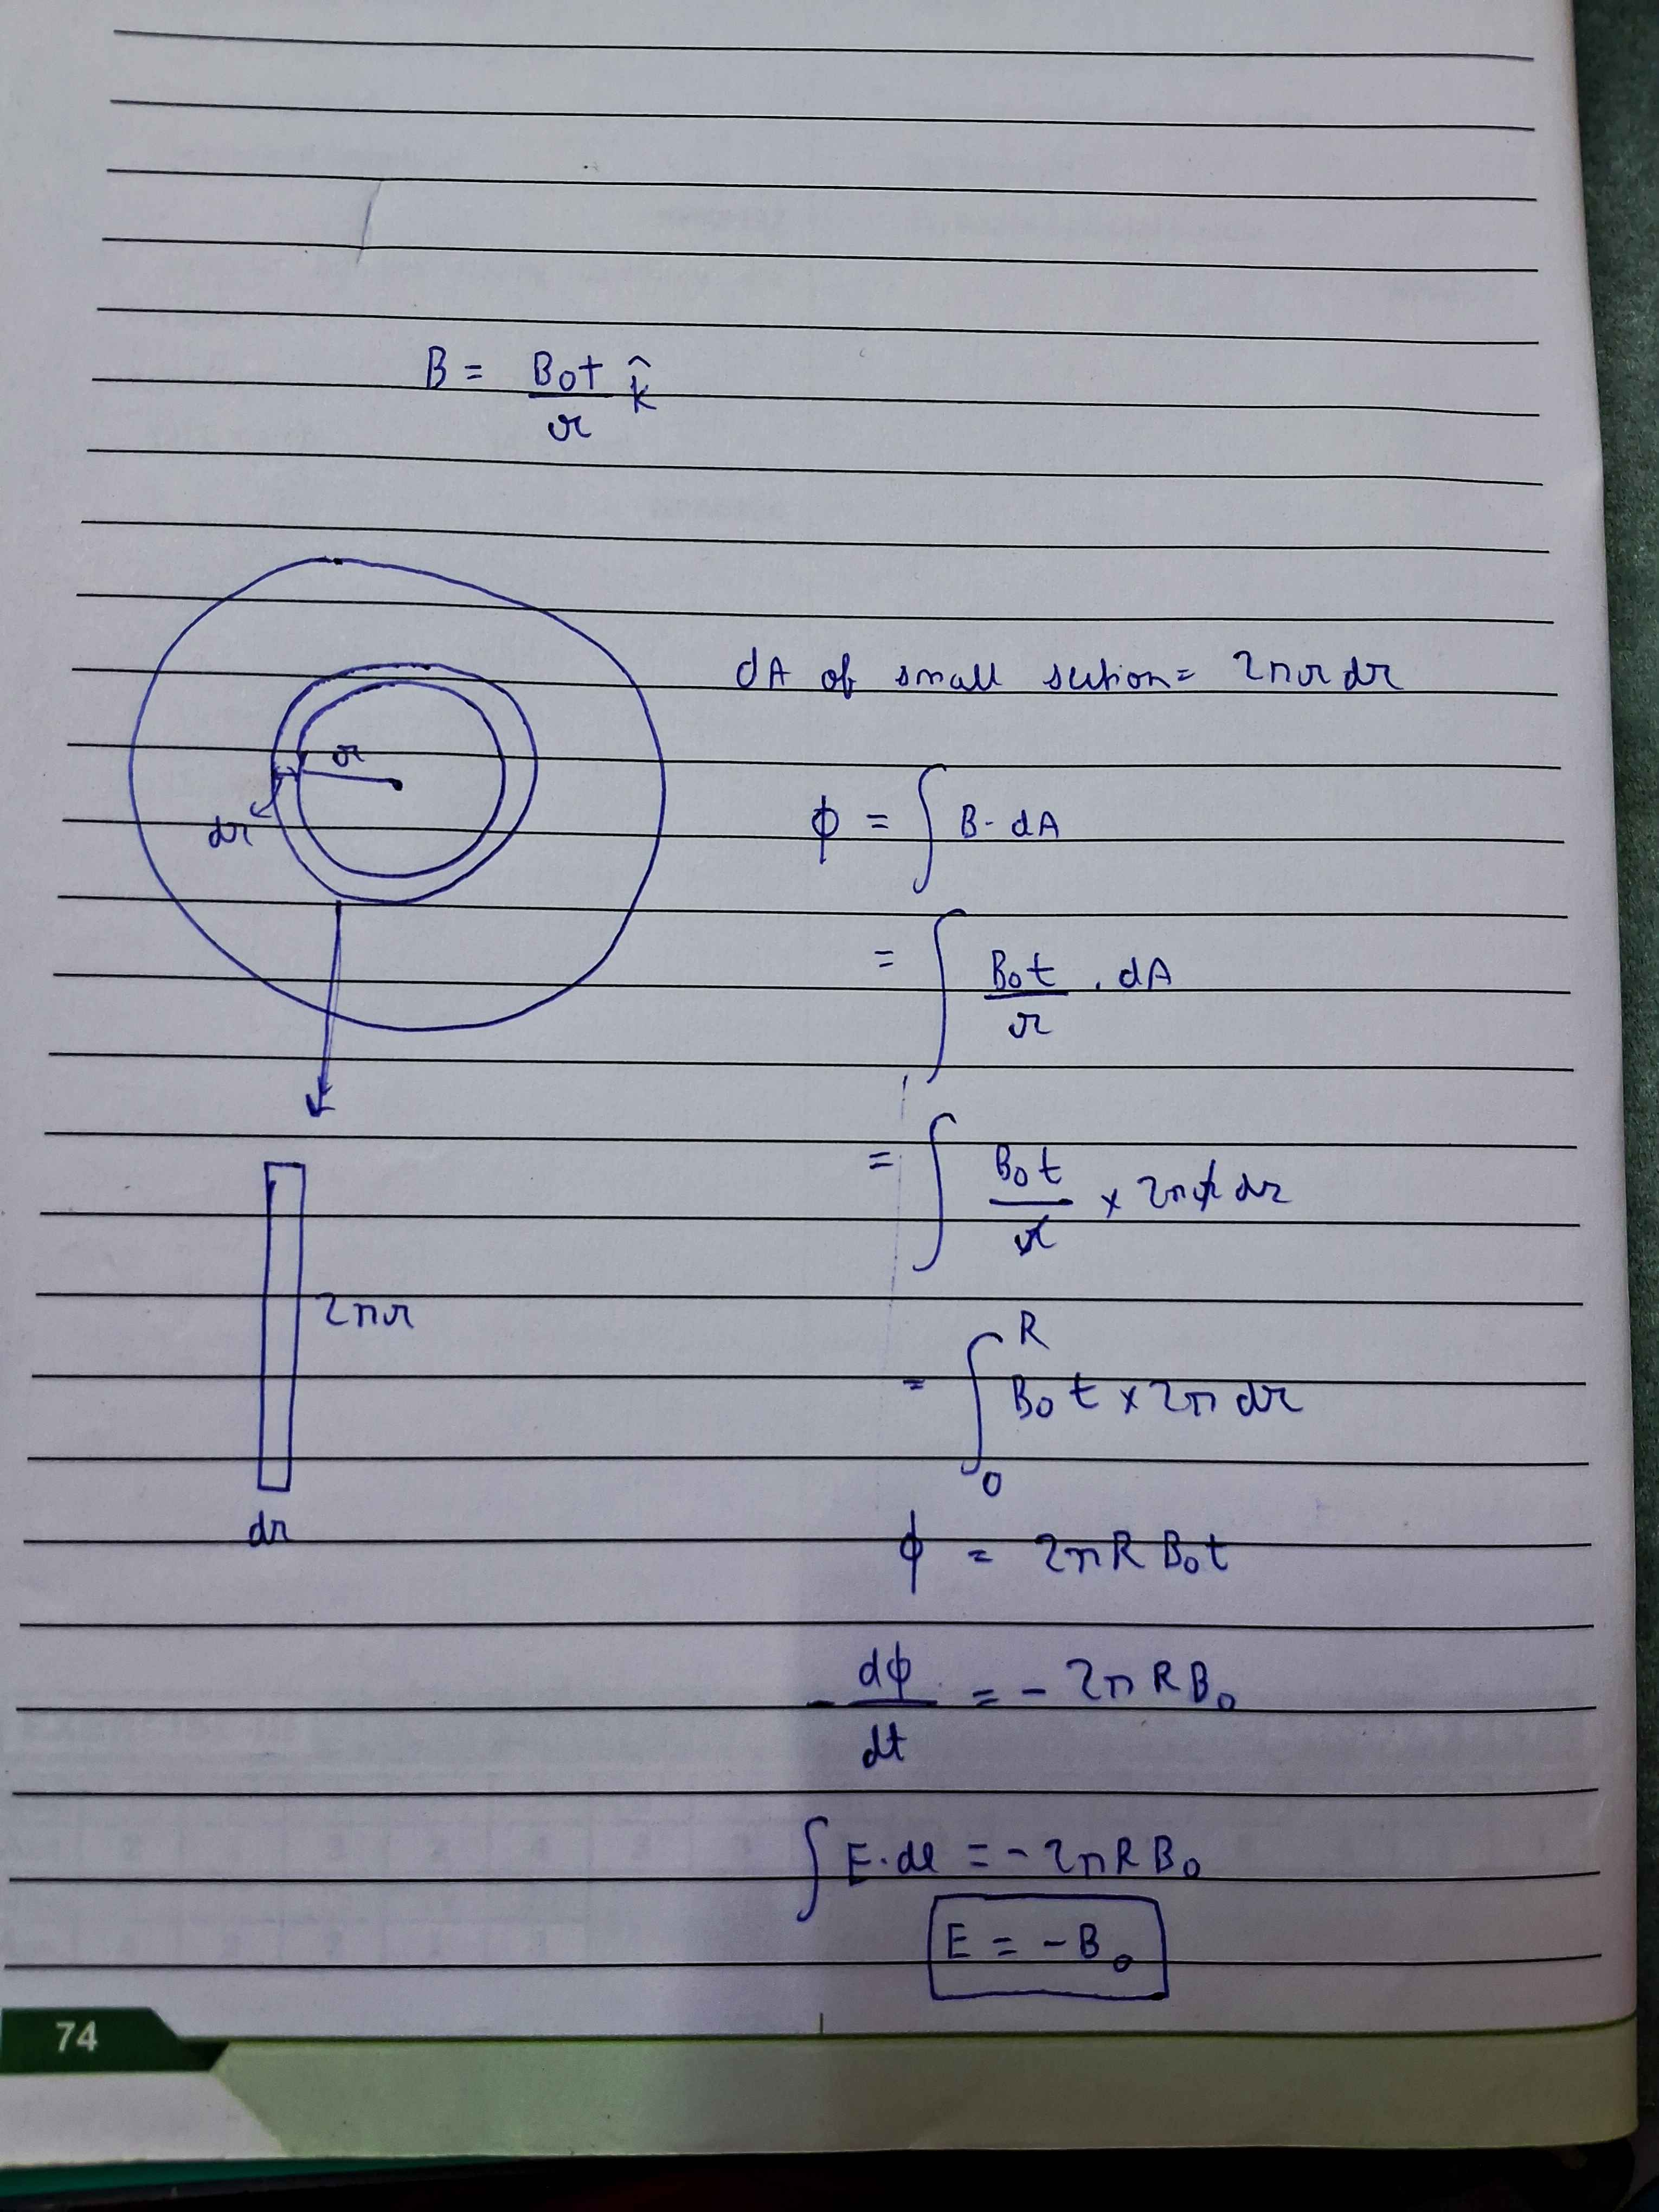 B = B₀t/r k̂
dA of small section = 2πr dr
r
dr
ϕ = ∫ B · dA
= ∫ B₀t/r . dA
= ∫ B₀t/r × 2πr dr
2πr
= ∫₀ᴿ B₀t × 2π dr
dr
ϕ = 2πR B₀t
- dϕ/dt = - 2πRB₀
∫ E·dl = - 2πRB₀
E = - B₀
74